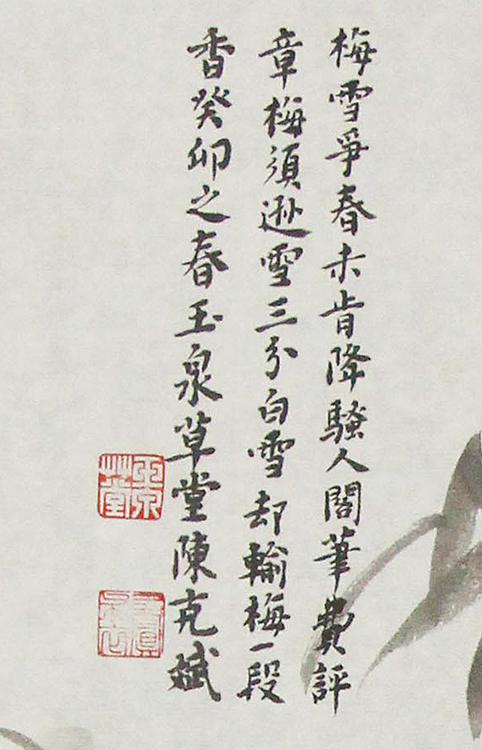 梅雪爭春未肯降騷人閣筆費評
章梅須遜雪三分白雪却輸梅一段
香癸卯之春玉泉草堂陳克斌
玉泉草堂